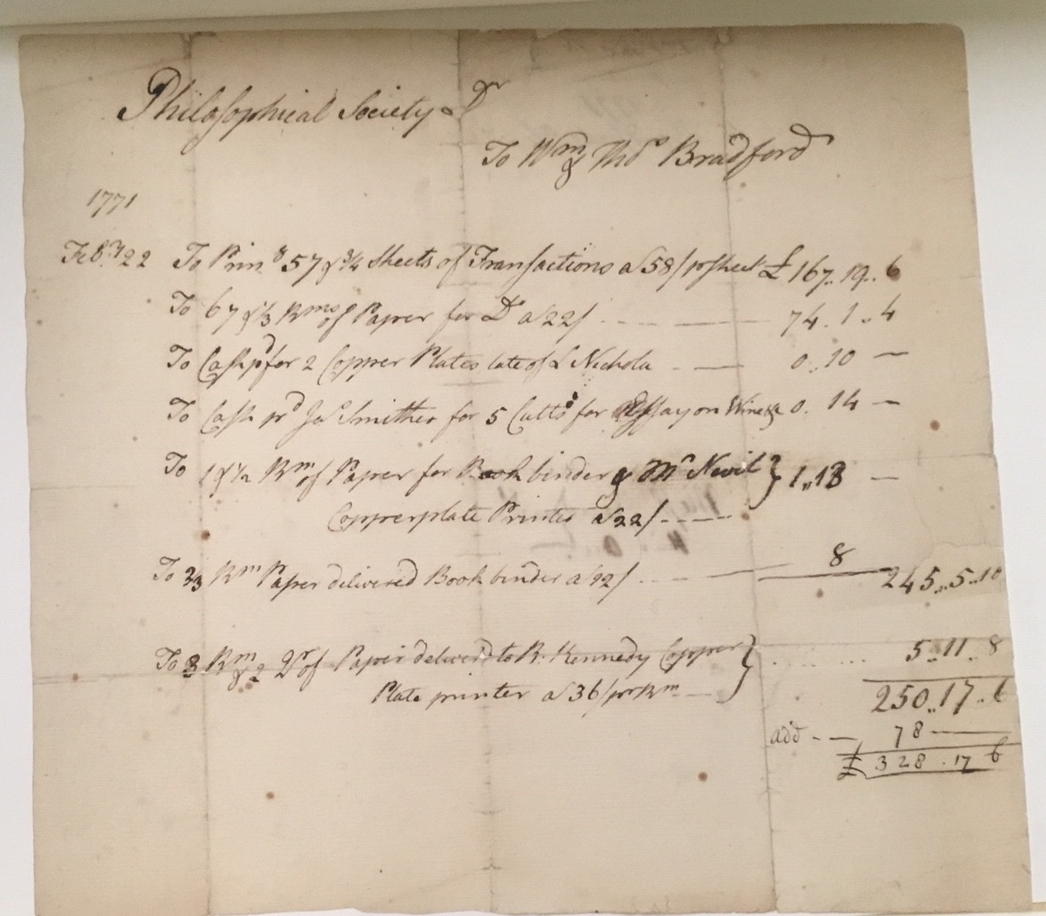 Philosophical Society Dr
To Wm & Thos Bradford
1771
Feby 22 To Pring 57 & 3/4 Sheets of Transactions a 58/ pr sheet £ 167.. 19.. 6
To 67 & 1/3 Rms of Paper for Do a 22/ 74. 1.. 4
To Cash pd for 2 Copper Plates late of L Nichola 0.. 10 —
To Cash pd Jas Smither for 5 Cutts for Essay on Wine &c 0. 14 —
To 1 & 1/2 Rm of Paper for Book binder & Mr Nevil } 1.. 13 —
Copperplate Printer a 22/
To Rm Paper delivered Book binder a 22/ 8
245.. 5.. 10
To 3 Rm & 2 Qr of Paper deliverd to R. Kennedy Copper } 5.. 11.. 8
Plate printer a 36/ pr Rm
250.. 17.. 6
add — 78 —
£ 328. 17 6